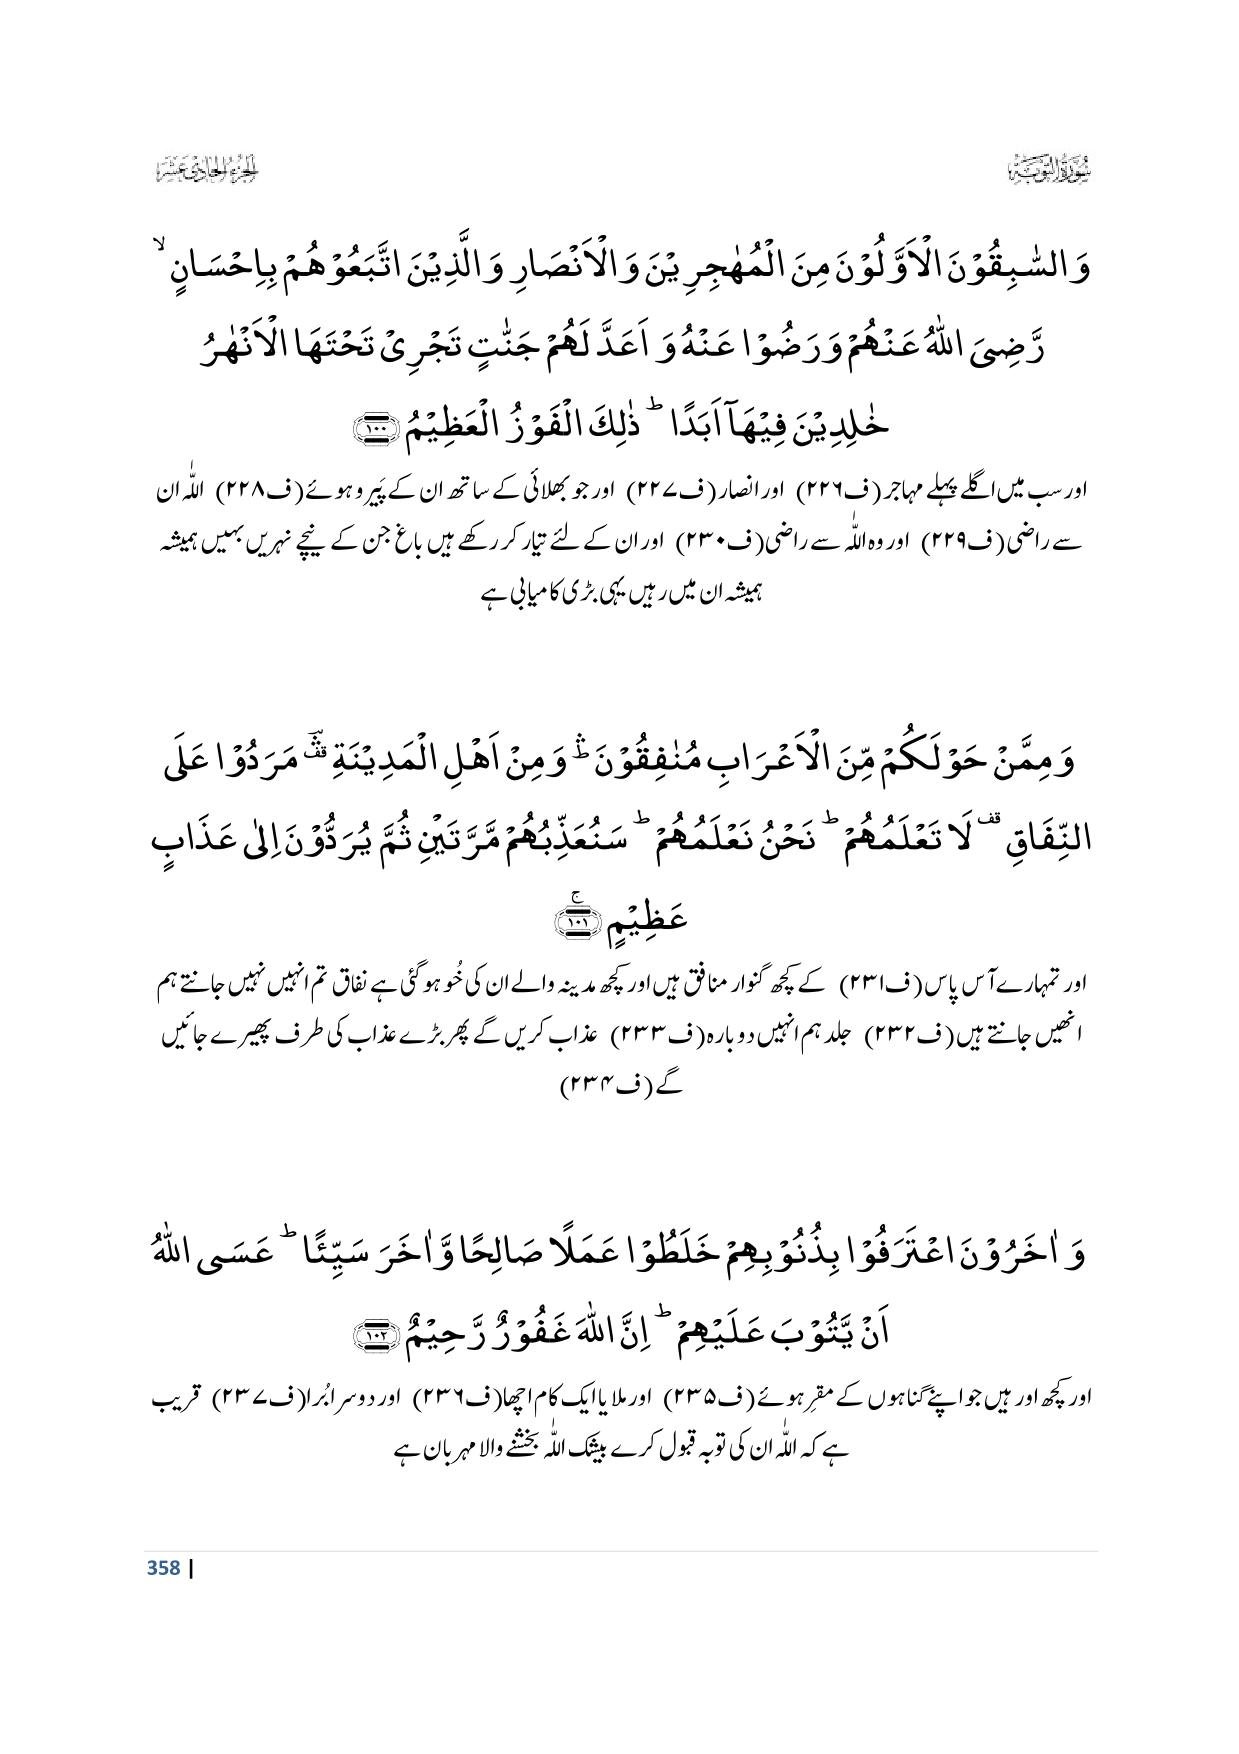 سُوْرَةُ التَّوْبَةِ
الجُزْءُ الحَادِيْ عَشَرَ
وَ السّٰبِقُوْنَ الْاَوَّلُوْنَ مِنَ الْمُهٰجِرِیْنَ وَ الْاَنْصَارِ وَ الَّذِیْنَ اتَّبَعُوْهُمْ بِاِحْسَانٍ ۙ
رَّضِیَ اللّٰهُ عَنْهُمْ وَ رَضُوْا عَنْهُ وَ اَعَدَّ لَهُمْ جَنّٰتٍ تَجْرِیْ تَحْتَهَا الْاَنْهٰرُ
خٰلِدِیْنَ فِیْهَاۤ اَبَدًا ؕ ذٰلِكَ الْفَوْزُ الْعَظِیْمُ ﴿۱۰۰﴾
اور سب میں اگلے پہلے مہاجر (ف۲۲۶) اور انصار (ف۲۲۷) اور جو بھلائی کے ساتھ ان کے پَیرو ہوئے (ف۲۲۸) اللّٰہ ان
سے راضی (ف۲۲۹) اور وہ اللّٰہ سے راضی (ف۲۳۰) اور ان کے لئے تیار کر رکھے ہیں باغ جن کے نیچے نہریں بہیں ہمیشہ
ہمیشہ ان میں رہیں یہی بڑی کامیابی ہے
وَ مِمَّنْ حَوْلَكُمْ مِّنَ الْاَعْرَابِ مُنٰفِقُوْنَ ۛؕ وَ مِنْ اَهْلِ الْمَدِیْنَةِ ۛ۫ مَرَدُوْا عَلَى
النِّفَاقِ ۫ لَا تَعْلَمُهُمْ ؕ نَحْنُ نَعْلَمُهُمْ ؕ سَنُعَذِّبُهُمْ مَّرَّتَیْنِ ثُمَّ یُرَدُّوْنَ اِلٰى عَذَابٍ
عَظِیْمٍ ﴿۱۰۱﴾ۚ
اور تمہارے آس پاس (ف۲۳۱) کے کچھ گنوار منافق ہیں اور کچھ مدینہ والے ان کی خُو ہو گئی ہے نفاق تم انہیں نہیں جانتے ہم
انھیں جانتے ہیں (ف۲۳۲) جلد ہم انہیں دوبارہ (ف۲۳۳) عذاب کریں گے پھر بڑے عذاب کی طرف پھیرے جائیں
گے (ف۲۳۴)
وَ اٰخَرُوْنَ اعْتَرَفُوْا بِذُنُوْبِهِمْ خَلَطُوْا عَمَلًا صَالِحًا وَّ اٰخَرَ سَیِّئًا ؕ عَسَى اللّٰهُ
اَنْ یَّتُوْبَ عَلَیْهِمْ ؕ اِنَّ اللّٰهَ غَفُوْرٌ رَّحِیْمٌ ﴿۱۰۲﴾
اور کچھ اور ہیں جو اپنے گناہوں کے مقرِ ہوئے (ف۲۳۵) اور ملایا ایک کام اچھا (ف۲۳۶) اور دوسرا بُرا (ف۲۳۷) قریب
ہے کہ اللّٰہ ان کی توبہ قبول کرے بیشک اللّٰہ بخشنے والا مہربان ہے
358 |